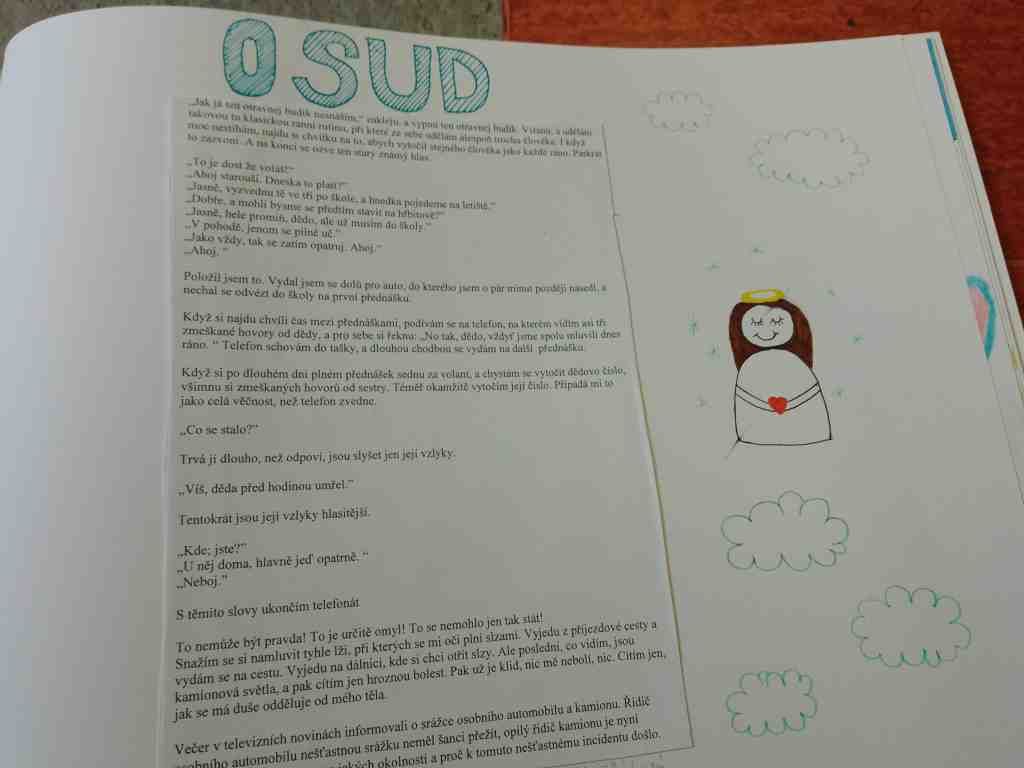 OSUD
„Jak já ten otravnej budík nesnáším,“ zakleju, a vypnu ten otravnej budík. Vstanu, a udělám
takovou tu klasickou ranní rutinu, při které ze sebe udělám alespoň trochu člověka. I když
moc nestíhám, najdu si chvilku na to, abych vytočil stejného člověka jako každé ráno. Párkrát
to zazvoní. A na konci se ozve ten starý známý hlas.
„To je dost že voláš!“
„Ahoj starouši. Dneska to platí?“
„Jasně, vyzvednu tě ve tři po škole, a hnedka pojedeme na letiště.“
„Dobře, a mohli bysme se předtím stavit na hřbitově?“
„Jasně, hele promiň, dědo, ale už musím do školy.“
„V pohodě, jenom se pilně uč.“
„Jako vždy, tak se zatím opatruj. Ahoj.“
„Ahoj. “
Položil jsem to. Vydal jsem se dolů pro auto, do kterého jsem o pár minut později nasedl, a
nechal se odvézt do školy na první přednášku.
Když si najdu chvíli čas mezi přednáškami, podívám se na telefon, na kterém vidím asi tři
zmeškané hovory od dědy, a pro sebe si řeknu: „No tak, dědo, vždyť jsme spolu mluvili dnes
ráno. “ Telefon schovám do tašky, a dlouhou chodbou se vydám na další přednášku.
Když si po dlouhém dni plném přednášek sednu za volant, a chystám se vytočit dědovo číslo,
všimnu si zmeškaných hovorů od sestry. Téměř okamžitě vytočím její číslo. Připadá mi to
jako celá věčnost, než telefon zvedne.
„Co se stalo?“
Trvá jí dlouho, než odpoví, jsou slyšet jen její vzlyky.
„Víš, děda před hodinou umřel.“
Tentokrát jsou její vzlyky hlasitější.
„Kde; jste?“
„U něj doma, hlavně jeď opatrně. “
„Neboj.“
S těmito slovy ukončím telefonát
To nemůže být pravda! To je určitě omyl! To se nemohlo jen tak stát!
Snažím se si namluvit tyhle lži, při kterých se mi oči plní slzami. Vyjedu z příjezdové cesty a
vydám se na cestu. Vyjedu na dálnici, kde si chci otřít slzy. Ale poslední, co vidím, jsou
kamionová světla, a pak cítím jen hroznou bolest. Pak už je klid, nic mě nebolí, nic. Cítím jen,
jak se má duše odděluje od mého těla.
Večer v televizních novinách informovali o srážce osobního automobilu a kamionu. Řidič
osobního automobilu nešťastnou srážku neměl šanci přežít, opilý řidič kamionu je nyní
jakých okolností a proč k tomuto nešťastnému incidentu došlo.